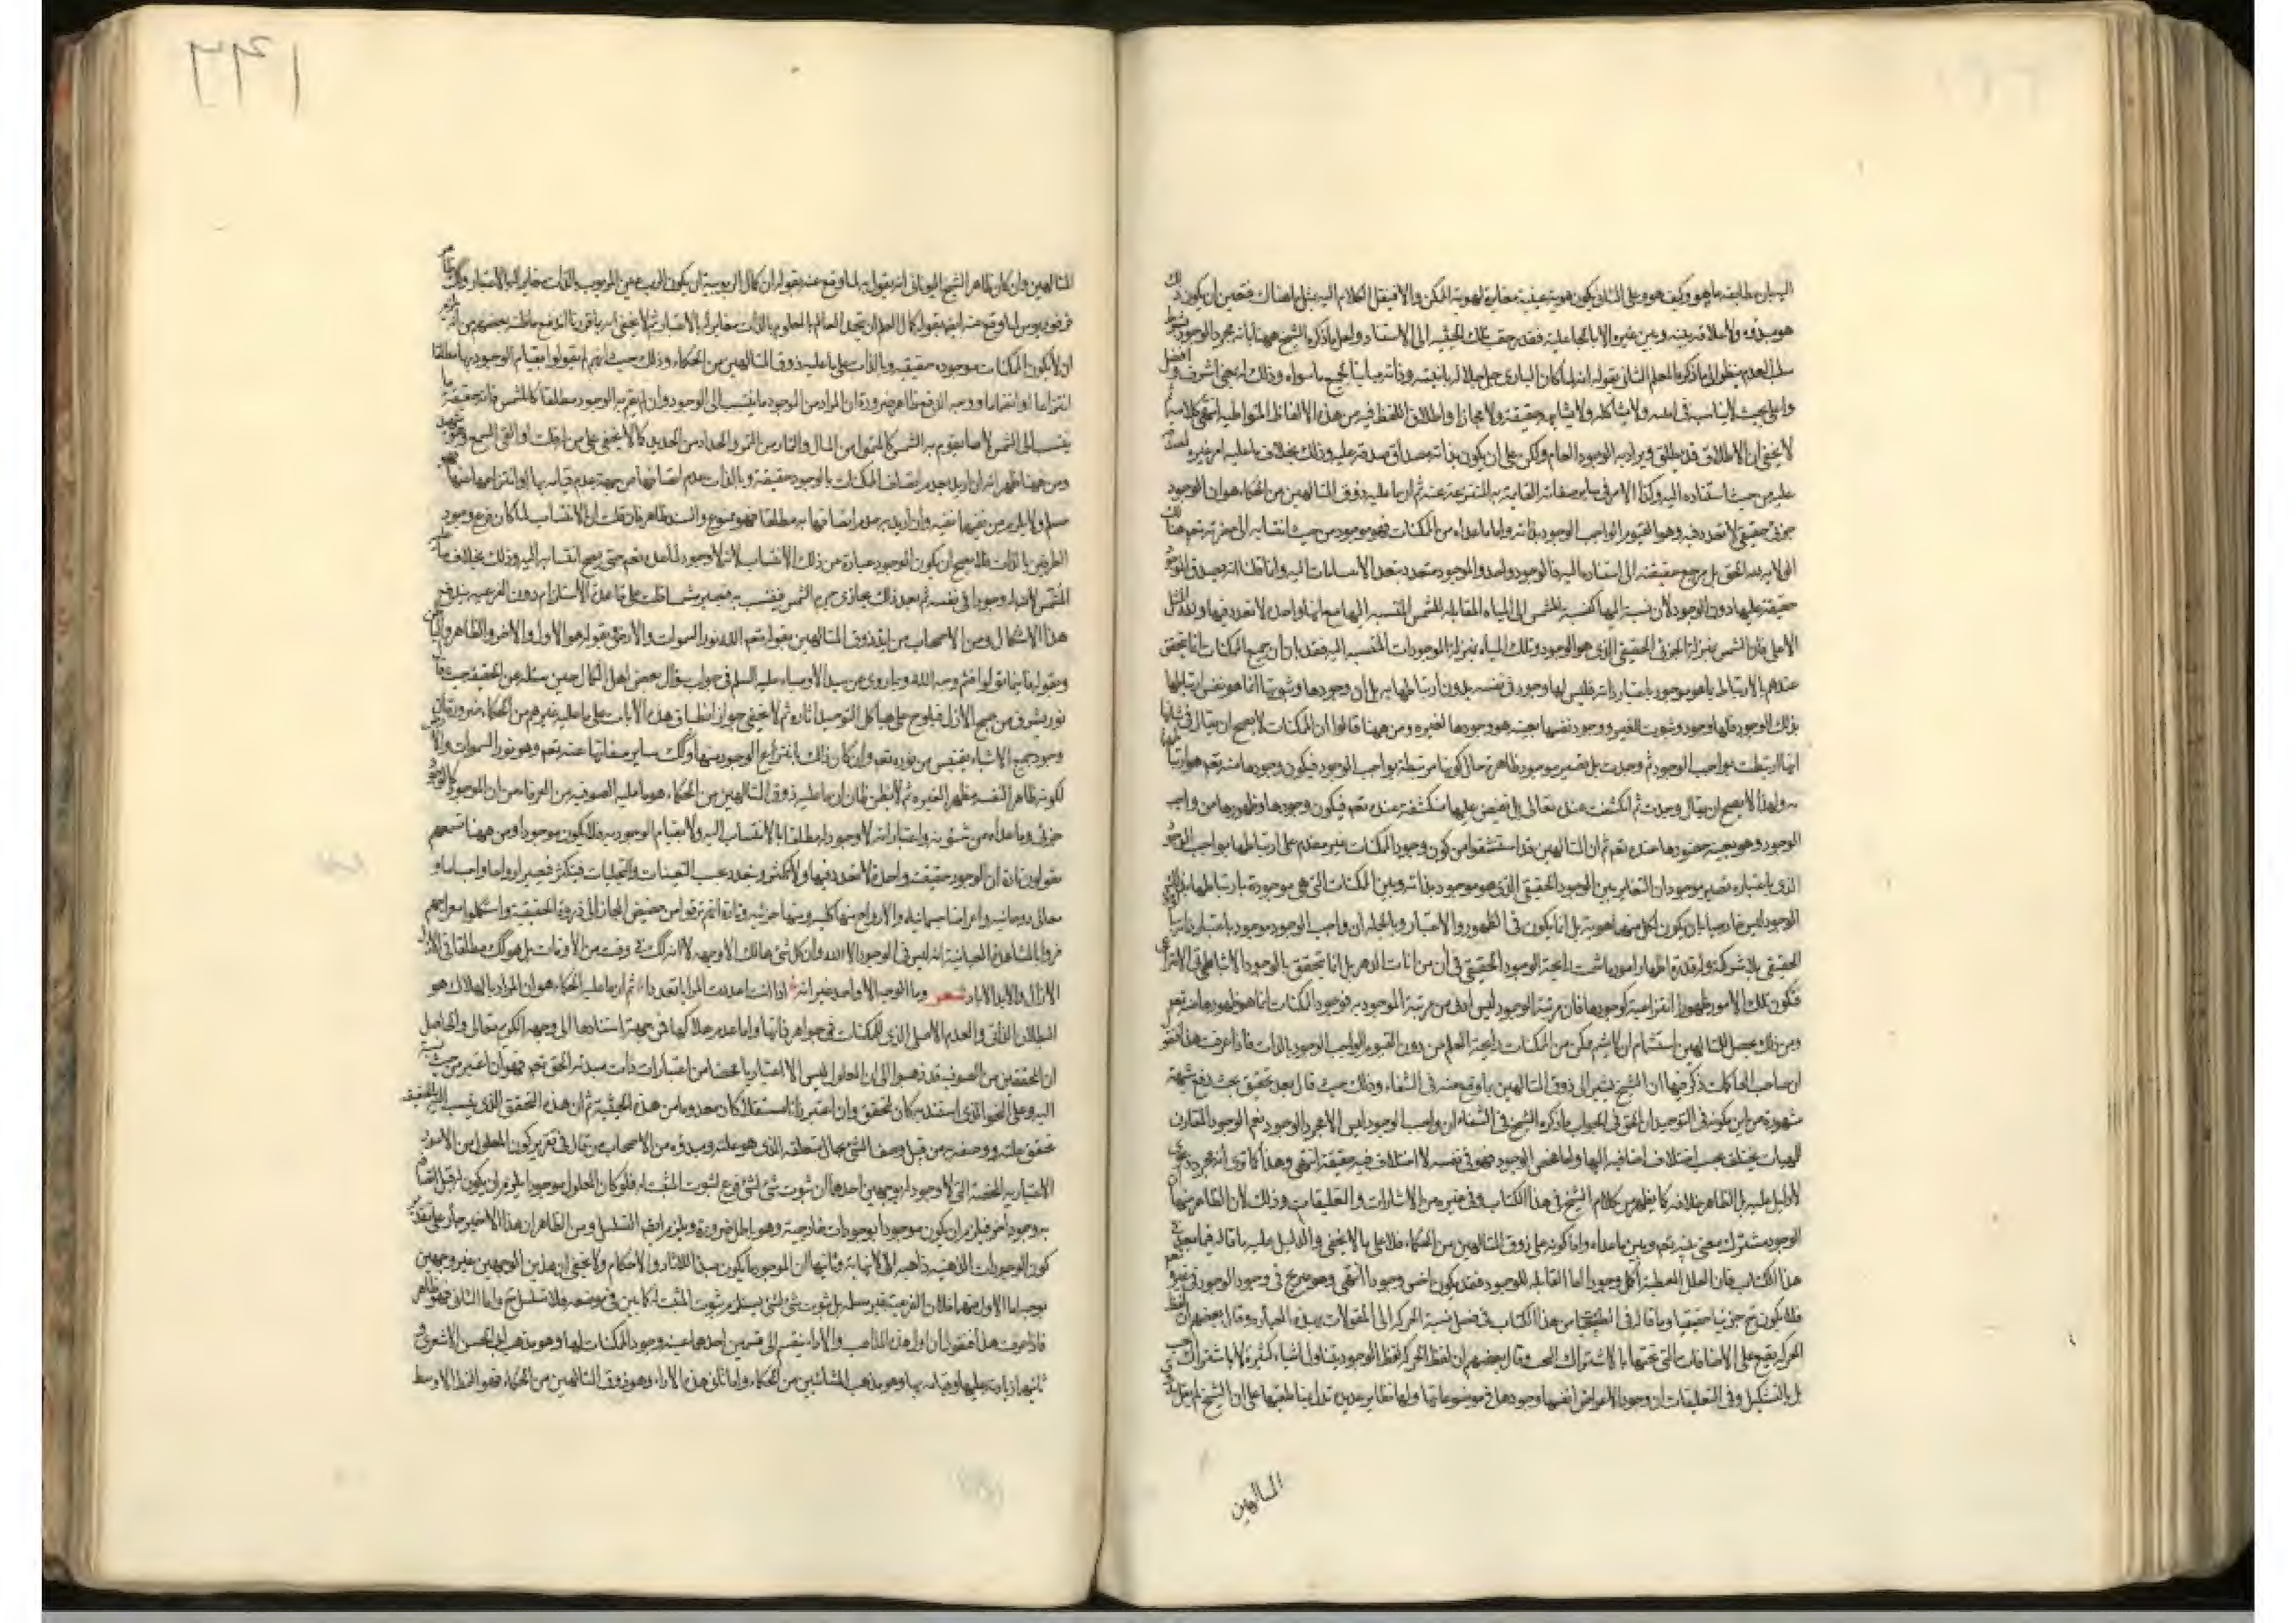 البيان طابقه ما هو وكيف هو وعلى الثاني يكون هوية عينية مغايرة لهوية الممكن والا فينقل الكلام اليه بمثل ما هناك فتعين ان يكون ذلك
هو مبدؤه ولا علاقة بينه وبين غيره الا بالجاعلية فقد رجعت تلك الحيثية الى الاستناد ولعل ما ذكره الشيخ ههنا بانه مجرد الوجود بشرط
سلب العدم ينظر الى ما ذكره المعلم الثاني بقوله انه لما كان الباري جل جلاله بانيته وذاته مباينا لجميع ما سواه وذلك له بمعنى اشرف وافضل
واعلى بحيث لا يناسبه في انيته ولا يشاكله ولا يشابهه حقيقة ولا مجازا واطلاق اللفظ فيه من هذه الالفاظ المتواطية انتهى كلامه ثم
لا يخفى ان الاطلاق قد يطلق ويراد به الوجود العام ولكن على ان يكون بذاته مصداق صدقه عليه وذلك بخلاف ما عليه امر غيره
عليه من حيث استناده اليه وكذا الامر في ساير صفاته القائمة به المنتزعة عنه ثم ان ما عليه ذوق المتالهين من الحكماء هو ان الوجود
جزئي حقيقي لا تعدد فيه وهو القيوم الواجب الوجود بذاته واما ما عداه من الممكنات فهو موجود من حيث انتسابه الى حضرته تعم
حقيقة عليها دون الوجود لان نسبة اليها كنسبة الشمس الى المياه المقابلة للشمس المنتسبة اليها مع انها واحد لا تعدد فيها
الاعلى فان الشمس بمنزلة الجزئي الحقيقي الذي هو الوجود وتلك المياه بمنزلة الموجودات المنتسبة اليه فقد بان ان جميع الممكنات انما تتحقق
عندهم بالارتباط بما هو موجود باعتبار ذاته فليس لها وجود في نفسه بدون ارتباطها به بل ان وجودها وثبوتها انما هو نفس ارتباطها
بذلك الوجود فلها وجود وثبوت للغير ووجود نفسها بعينه هو وجودها لغيره ومن ههنا قالوا ان الممكنات لا يصح ان يقال في شانها
انها ارتبطت بواجب الوجود ثم وجدت بل تصير موجود ظاهرة حال كونها مرتبطة بواجب الوجود فيكون وجودها منه تعم هو ارتباطها
به ولهذا لا يصح ان يقال وجدت ثم انكشفت عنده تعالى بل تفيض عليها منكشفة عنده تعم فيكون وجودها وظهورها من واجب
الوجود وهو بعينه حضورها عنده تعم ثم ان المتالهين قد استشفوا من كون وجود الممكنات غير مقدم على ارتباطها بواجب الوجود
الذي باعتباره تصير موجود ان التغاير بين الوجود الحقيقي الذي هو موجود بذاته وبين الممكنات التي هي موجودة بارتباطها بذلك
الوجود ليس خارجيا بان يكون لكل منهما هوية بل انما يكون في الظهور والاعتبار وبالجملة ان واجب الوجود موجود باعتبار ذاته
الحقيقي بلا شركة وله قدرة اظهار امور ما شمت رايحة الوجود الحقيقي في آن من انات الدهر بل انما تتحقق بالوجود الارتباطي
فتكون تلك الامور ظهورا انتزاعية كوجودها فان مرتبة الوجود ليس ادنى من مرتبة الموجود به فوجود الممكنات انما هو ظهورها منه تعم
ومن ذلك يحصل للمتالهين استشمام ان لا يشم ممكن من الممكنات رايحة العلم من دون القيوم الواجب الوجود بالذات فاذا عرفت هذا فنقول
ان صاحب المحاكمات ذكر فيها ان الشيخ يشير الى ذوق المتالهين بما وقع عنه في الشفاء وذلك حيث قال بعد تحقيق بحث دفع شبهة
مشهورة من ابن كمونة في التوحيد ان الحق في الجواب ما ذكره الشيخ في الشفاء ان واجب الوجود ليس الا مجرد الوجود نعم الوجود المقارن
للمهيات يختلف بحسب اختلاف اضافيه اليها واما محض الوجود فهو في نفسه لا اختلاف فيه حقيقة انتهى وهذا كما ترى انه مجرد دعوى
لا دليل عليه بل الظاهر خلافه كما يظهر من كلام الشيخ في هذا الكتاب وفي غيره من الاشارات والتعليقات وذلك لان الظاهر منها ان
الوجود مشترك معنى بينه تعم وبين ما عداه واما كونه على ذوق المتالهين من الحكماء فلا على ما لا يخفى والدليل عليه ما قاله فيما بعد في
هذا الكتاب فان العلل المعطية اكمل وجودا اما القابلة للوجود فقد يكون اخس وجودا انتهى وهو صريح في وجود الوجود في غيره تعم
فلا يكون تع جزئيا حقيقيا وما قاله في الطبيعي من هذا الكتاب في فصل نسبة الحركة الى المقولات بهذه العبارة وقال بعضهم ان لفظ
الحركة يقع على الاصناف التي تحتها بالاشتراك البحت وقال بعضهم ان لفظ الحركة كلفظ الوجود يتناول اشياء كثيرة لا باشتراك بحت
بل بالتشكيك وفي التعليقات ان وجود الاعراض انفسها وجودها في موضوعاتها ولها نظاير عديدة تدل بمناطقيها على ان الشيخ لم يقل بذوق
المتالهين
١٩٦٢
المتالهين وان كان ظاهر الشيخ اليوناني انه يقول به لما وقع عنه بقوله ان كمال الربوبية ان يكون الرب عين المربوب بالذات مغايرا له بالاعتبار وكذا ظاهر
فرفوريوس لما وقع عنه ايضا بقوله كمال العلم ان يتحد العالم بالمعلوم بالذات مغايرا له بالاعتبار ثم لا يخفى انه بما قررنا اندفع ما ظنه بعضهم من انه يلزم
ان لا يكون الممكنات موجودة حقيقية وبالذات على ما عليه ذوق المتالهين من الحكماء وذلك حيث انهم لم يقولوا بقيام الوجود بها مطلقا
انتزاعيا او انضماميا ووجه الدفع ظاهر ضرورة ان المراد من الموجود ما ينتسب الى الوجود وان لم يقم به الوجود مطلقا كالمشمس فانه حقيقة ما
ينتسب الى الشمس لا ما يقوم به الشمس كالمتمول من المال والتمار من التمر والحداد من الحديد كما لا يخفى على من القى السمع وهو شهيد
ومن ههنا ظهر انه ان اريد بعدم اتصاف الممكنات بالوجود حقيقة وبالذات عدم اتصافها من جهة عدم قيامه بها او انتزاعها عنها فهو
مسلم ولا يلزم من نفيها نفيه وان اريد به عدم اتصافها به مطلقا فهو ممنوع والسند ظاهر فان قلت ان الانتساب لما كان فرع وجود
الطرفين بالذات فلا يصح ان يكون الموجود عبارة عن ذلك الانتساب لانه لا وجود لما عداه تعم حتى يصح انتسابه اليه وذلك بخلاف ماء
المشمس لان له وجودا في نفسه ثم بعد ذلك يحاذي جرم الشمس فينتسب به فيصير مشمسا قلت على قاعدة الاستلزام دون الفرعية يندفع
هذا الاشكال ومن الاصحاب من ايد ذوق المتالهين بقوله تعم الله نور السموات والارض وبقوله هو الاول والاخر والظاهر والباطن
وبقوله فاينما تولوا فثم وجه الله وبما روى عن سيد الاوصياء عليه السلم في جواب سؤال بعض اهل الكمال حين سئله عن الحقيقة حيث قال
نور يشرق من صبح الازل فيلوح على هياكل التوحيد اثاره ثم لا يخفى جواز انطباق هذه الايات على ما عليه غيرهم من الحكماء ضرورة ان
وجود جميع الاشياء يقتبس من نوره تعم وان كان ذلك بانتزاع الوجود منها وكذلك ساير صفاتها عنه تعم وهو نور السموات والارض
لكونه ظاهرا لنفسه مظهرا لغيره ثم لا يظن ظان ان ما عليه ذوق المتالهين من الحكماء هو ما عليه الصوفية من العرفاء من ان الموجود كالوجود
جزئي وما عداه من شؤنه واعتباراته لا وجود له مطلقا لا بالانتساب اليه ولا بقيام الوجود به فلا يكون موجودا ومن ههنا تسمعهم
يقولون تارة ان الوجود حقيقة واحدة لا تعدد فيها ولا تكثر ويتعدد بحسب التعينات والتجليات فيتكثر فيصير ارواحا واجساما و
معاني روحانية واعراضا جسمانية والارواح منها كلية ومنها جزئية وتارة انهم ترقوا من حضيض المجاز الى ذروة الحقيقة واستكملوا معراجهم
فراوا بالمشاهدة العيانية انه ليس في الوجود الا الله وان كل شيء هالك الا وجهه لا انه كذلك في وقت من الاوقات بل هو كذلك مطلقا في الازل
الازال والابد الاباد شعر وما الوجه الا واحد غير انه اذا انت اعددت المرايا تعددا ثم ان ما عليه الحكماء هو ان المراد بالهلاك هو
البطلان الذاتي والعدم الاصلي الذي للممكنات في جواهر ذاتها واما عدم هلاكها فمن جهة استنادها الى وجهه الكريم تعالى والحاصل
ان المحققين من الصوفية قد ذهبوا الى ان المعلول ليس الا اعتباريا محضا من اعتبارات ذات مبدئه الحق تعم فهو ان اعتبر من حيث نسبته
اليه وعلى النحو الذي استند به كان له تحقق وان اعتبر ذاتا مستقلة كان معدوما من هذه الحيثية ثم ان هذا التحقق الذي ينسب اليه بالحقيقة
تحقق علته ووصفه به من قبيل وصف الشيء بحال متعلقه الذي هو علته ومبدؤه ومن الاصحاب من قال في تقرير كون المعلول من الامور
الاعتبارية المحضة التي لا وجود لها بوجهين احدهما ان ثبوت شيء لشيء فرع لثبوت المثبت له فلو كان المعلول موجودا يلزم ان يكون له قبل اتصافه
به وجود اخر فيلزم ان يكون موجودا بوجودات خارجية وهو باطل ضرورة ويلزم ايضا التسلسل ومن الظاهر ان هذا الاخير جار على تقدير
كون الوجودات الذهنية ذاهبة الى لا نهاية وثانيهما ان الموجود ما يكون مبدءا للاثار والاحكام ولا يخفى ان هذين الوجهين غير وجيهين
بوجه اما الاول منهما فلان الفرعية غير مسلمة بل ثبوت شيء لشيء يستلزم ثبوت المثبت له كما بين في موضعه فلا تسلسل تع واما الثاني فهو ظاهر
فاذا عرفت هذا فنقول ان اول هذه المذاهب والاراء ينقسم الى قسمين احدهما عينية وجود الممكنات لها وهو مذهب ابي الحسن الاشعري و
ثانيهما زيادته عليها وقيامه بها وهو مذهب المشائين من الحكماء واما ثاني هذه الاراء وهو ذوق المتالهين من الحكماء فهو النمط الاوسط